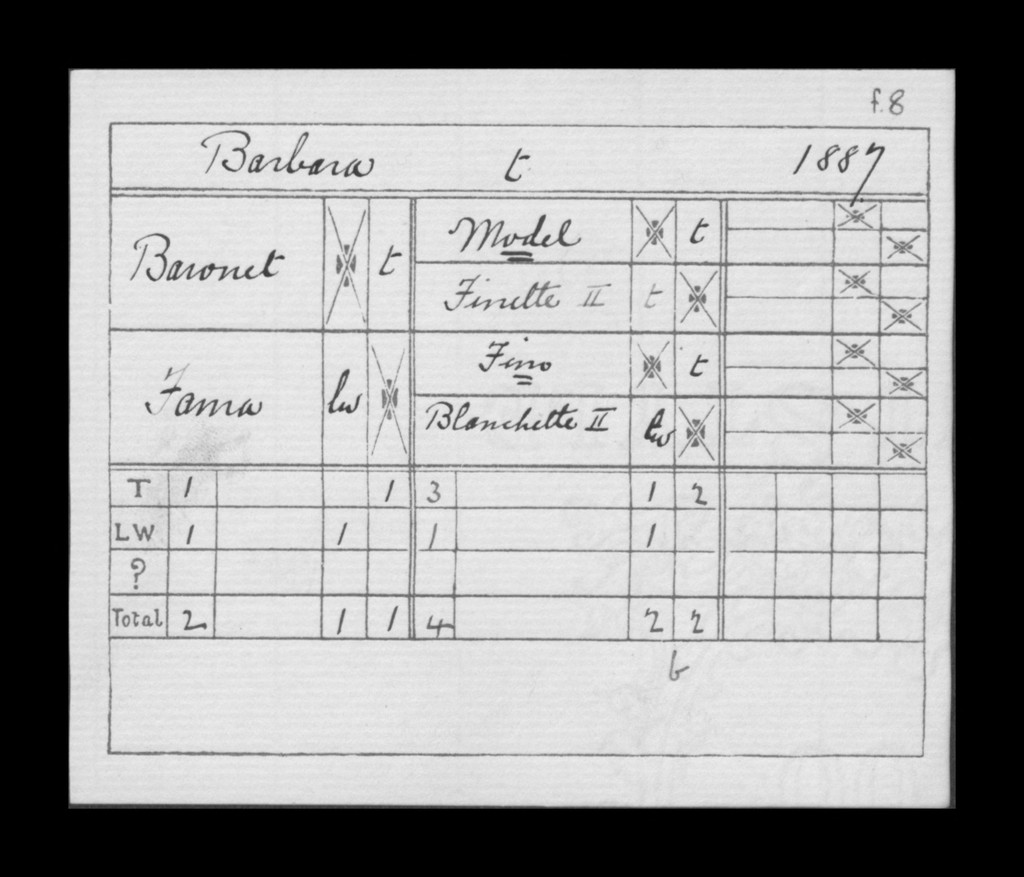 f.8
Barbara t 1887
Baronet t
Model t
Finette II t
Fino t
Fama lw
Blanchette II lw
T 1 1 3 1 2
LW 1 1 1 1
?
Total 2 1 1 4 2 2
b